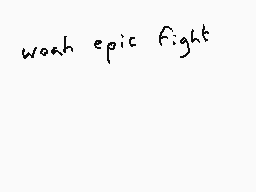 woah epic fight